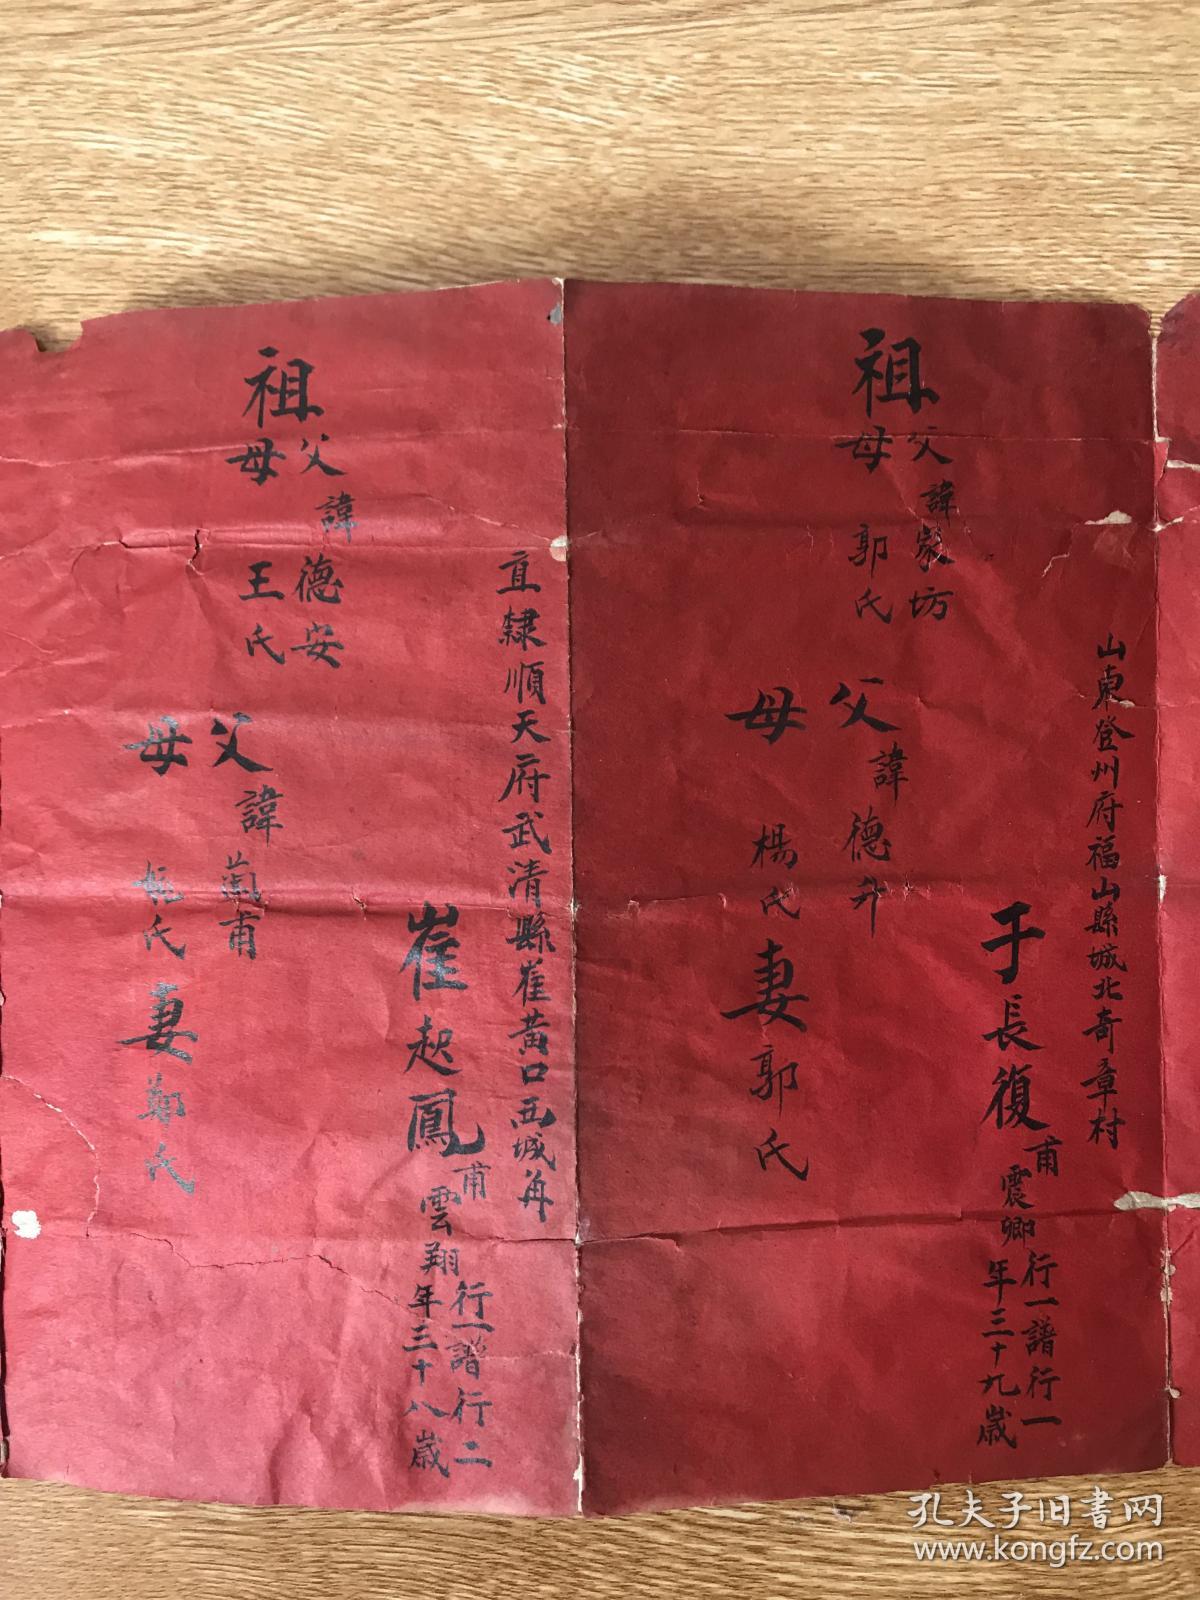 山東登州府福山縣城北奇章村
于長復甫震卿行一譜行一
年三十九歲
祖父諱蒙坊
母郭氏
父諱德升
母楊氏
妻郭氏
直隸順天府武清縣崔黃口西城角
崔起鳳甫雲翔行一譜行二
年三十八歲
祖父諱德安
母王氏
父諱蘭甫
母姚氏
妻鄭氏
孔夫子旧書网
www.kongfz.com